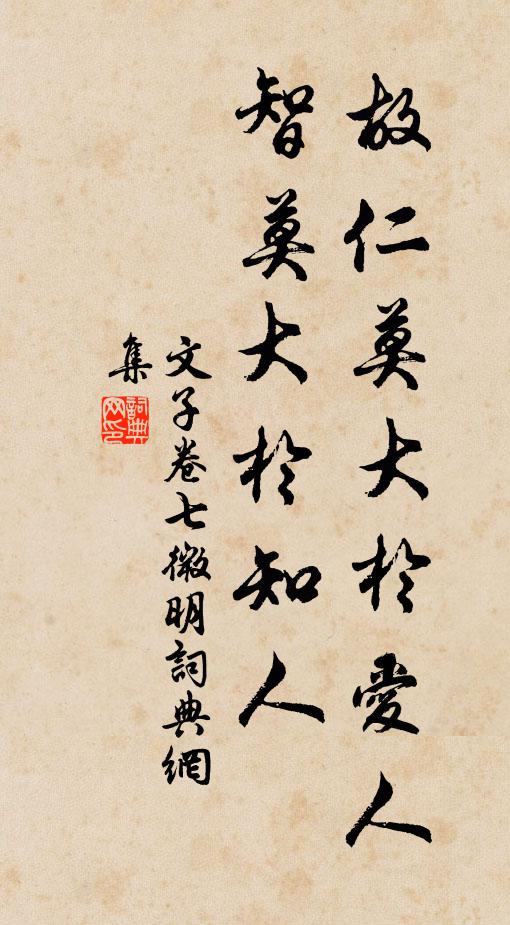 故仁莫大於愛人
智莫大於知人
文子卷七微明詞典網
集
詞典
网印